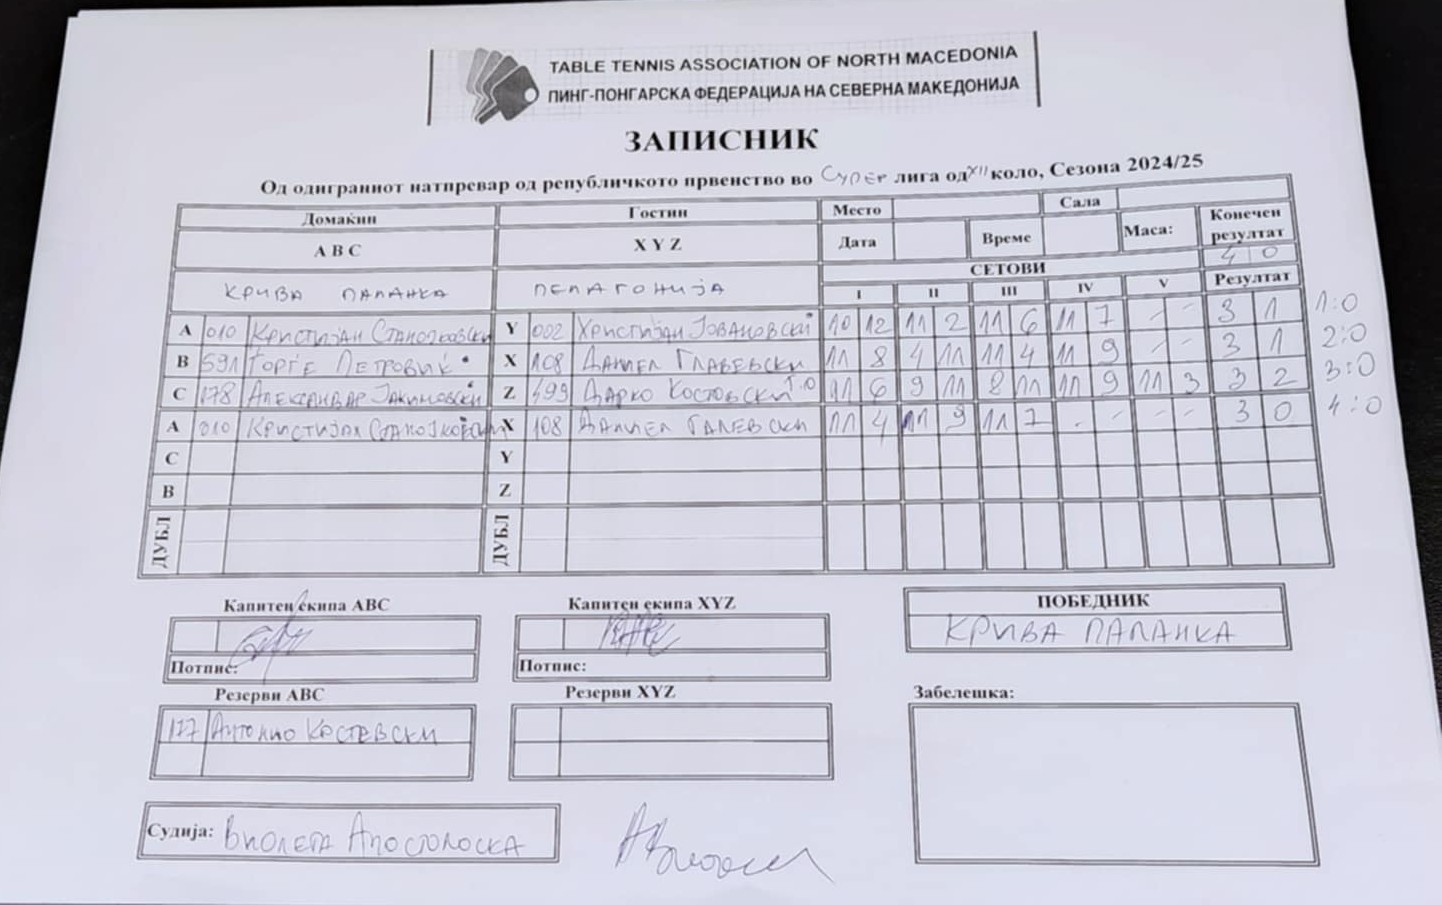 TABLE TENNIS ASSOCIATION OF NORTH MACEDONIA
ПИНГ-ПОНГАРСКА ФЕДЕРАЦИЈА НА СЕВЕРНА МАКЕДОНИЈА
ЗАПИСНИК
Од одиграниот натпревар од републичкото првенство во Супер лига од XII коло, Сезона 2024/25
Домаќин Гостин Место Сала Конечен резултат
A B C X Y Z Дата Време Маса: 4 0
КРИВА ПАЛАНКА ПЕЛАГОНИЈА СЕТОВИ Резултат
I II III IV V
A 010 Кристијан Станојковски Y 002 Христијан Јовановски 10 12 11 2 11 6 11 7 - - 3 1 1:0
B 591 Ѓорѓе Петровиќ X 108 Даниел Главевски 11 8 4 11 11 4 11 9 - - 3 1 2:0
C 178 Александар Јакимовски Z 499 Дарко Костовски Т.О 11 6 9 11 8 11 11 9 11 3 3 2 3:0
A 010 Кристијан Станојковски X 108 Даниел Галевски 11 4 11 9 11 7 - - - - 3 0 4:0
C Y
B Z
ДУБЛ ДУБЛ
Капитен екипа ABC Капитен екипа XYZ ПОБЕДНИК
КРИВА ПАЛАНКА
Потпис: Потпис:
Резерви ABC Резерви XYZ Забелешка:
177 Антонио Костевски
Судија: Виолета Апостолоска